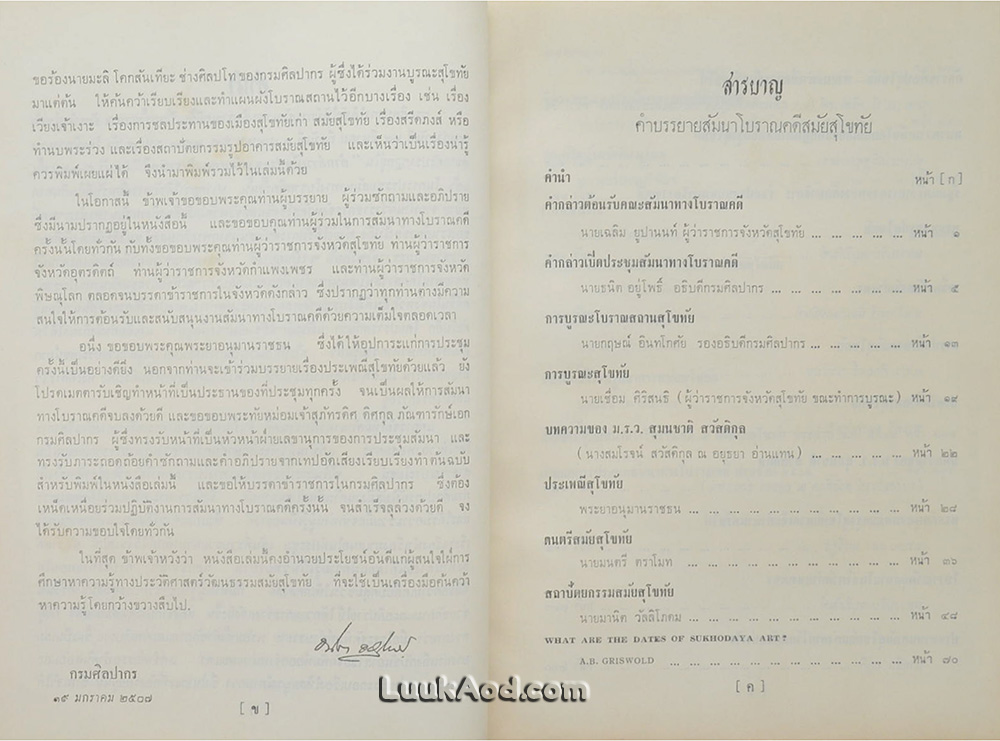 ขอร้องนายมะลิ โคกสันเทียะ ช่างศิลปโท ของกรมศิลปากร ผู้ซึ่งได้ร่วมงานบูรณะสุโขทัย
มาแต่ต้น ให้ค้นคว้าเรียบเรียงและทำแผนผังโบราณสถานไว้อีกบางเรื่อง เช่น เรื่อง
เวียงเจ้าเงาะ เรื่องการชลประทานของเมืองสุโขทัยเก่า สมัยสุโขทัย เรื่องสรีดภงส์ หรือ
ทำนบพระร่วง และเรื่องสถาปัตยกรรมรูปอาคารสมัยสุโขทัย และเห็นว่าเป็นเรื่องน่ารู้
ควรพิมพ์เผยแผ่ได้ จึงนำมาพิมพ์รวมไว้ในเล่มนี้ด้วย
ในโอกาสนี้ ข้าพเจ้าขอขอบพระคุณท่านผู้บรรยาย ผู้ร่วมซักถามและอภิปราย
ซึ่งมีนามปรากฏอยู่ในหนังสือนี้ และขอขอบคุณท่านผู้ร่วมในการสัมนาทางโบราณคดี
ครั้งนั้นโดยทั่วกัน กับทั้งขอขอบพระคุณท่านผู้ว่าราชการจังหวัดสุโขทัย ท่านผู้ว่าราชการ
จังหวัดอุตรดิตถ์ ท่านผู้ว่าราชการจังหวัดกำแพงเพชร และท่านผู้ว่าราชการจังหวัด
พิษณุโลก ตลอดจนบรรดาข้าราชการในจังหวัดดังกล่าว ซึ่งปรากฏว่าทุกท่านต่างมีความ
สนใจให้การต้อนรับและสนับสนุนงานสัมนาทางโบราณคดีด้วยความเต็มใจตลอดเวลา
อนึ่ง ขอขอบพระคุณพระยาอนุมานราชธน ซึ่งได้ให้อุปการะแก่การประชุม
ครั้งนี้เป็นอย่างดียิ่ง นอกจากท่านจะเข้าร่วมบรรยายเรื่องประเพณีสุโขทัยด้วยแล้ว ยัง
โปรดเมตตารับเชิญทำหน้าที่เป็นประธานของที่ประชุมทุกครั้ง จนเป็นผลให้การสัมนา
ทางโบราณคดีจบลงด้วยดี และขอขอบพระทัยหม่อมเจ้าสุภัทรดิศ ดิศกุล ภัณฑารักษ์เอก
กรมศิลปากร ผู้ซึ่งทรงรับหน้าที่เป็นหัวหน้าฝ่ายเลขานุการของการประชุมสัมนา และ
ทรงรับภาระถอดถ้อยคำซักถามและคำอภิปรายจากเทปอัดเสียงเรียบเรียงทำต้นฉบับ
สำหรับพิมพ์ในหนังสือเล่มนี้ และขอให้บรรดาข้าราชการในกรมศิลปากร ซึ่งต้อง
เหน็ดเหนื่อยร่วมปฏิบัติงานการสัมนาทางโบราณคดีครั้งนั้น จนสำเร็จลุล่วงด้วยดี จง
ได้รับความขอบใจโดยทั่วกัน
ในที่สุด ข้าพเจ้าหวังว่า หนังสือเล่มนี้คงอำนวยประโยชน์อันดีแก่ผู้สนใจใฝ่การ
ศึกษาหาความรู้ทางประวัติศาสตร์วัฒนธรรมสมัยสุโขทัย ที่จะใช้เป็นเครื่องมือค้นคว้า
หาความรู้โดยกว้างขวางสืบไป.
กรมศิลปากร
๑๙ มกราคม ๒๕๐๗
[ ข ]
สารบาญ
คำบรรยายสัมนาโบราณคดีสมัยสุโขทัย
คำนำ หน้า [ ก ]
คำกล่าวต้อนรับคณะสัมนาทางโบราณคดี
นายเฉลิม ยูปานนท์ ผู้ว่าราชการจังหวัดสุโขทัย ... ... ... ... ... หน้า ๑
คำกล่าวเปิดประชุมสัมนาทางโบราณคดี
นายธนิต อยู่โพธิ์ อธิบดีกรมศิลปากร ... ... ... ... ... ... ... หน้า ๕
การบูรณะโบราณสถานสุโขทัย
นายกฤษณ์ อินทโกศัย รองอธิบดีกรมศิลปากร ... ... ... ... ... หน้า ๑๓
การบูรณะสุโขทัย
นายเชื่อม ศิริสนธิ ( ผู้ว่าราชการจังหวัดสุโขทัย ขณะทำการบูรณะ ) หน้า ๑๙
บทความของ ม.ร.ว. สุมนชาติ สวัสดิกุล
( นางสมโรจน์ สวัสดิกุล ณ อยุธยา อ่านแทน ) ... ... ... ... ... หน้า ๒๒
ประเพณีสุโขทัย
พระยาอนุมานราชธน ... ... ... ... ... ... ... ... ... ... หน้า ๒๘
ดนตรีสมัยสุโขทัย
นายมนตรี ตราโมท ... ... ... ... ... ... ... ... ... ... หน้า ๓๖
สถาปัตยกรรมสมัยสุโขทัย
นายมานิต วัลลิโภดม ... ... ... ... ... ... ... ... ... ... หน้า ๔๘
WHAT ARE THE DATES OF SUKHODAYA ART ?
A.B. GRISWOLD ... ... ... ... ... ... ... ... ... ... หน้า ๗๐
[ ค ]
LuukAod.com